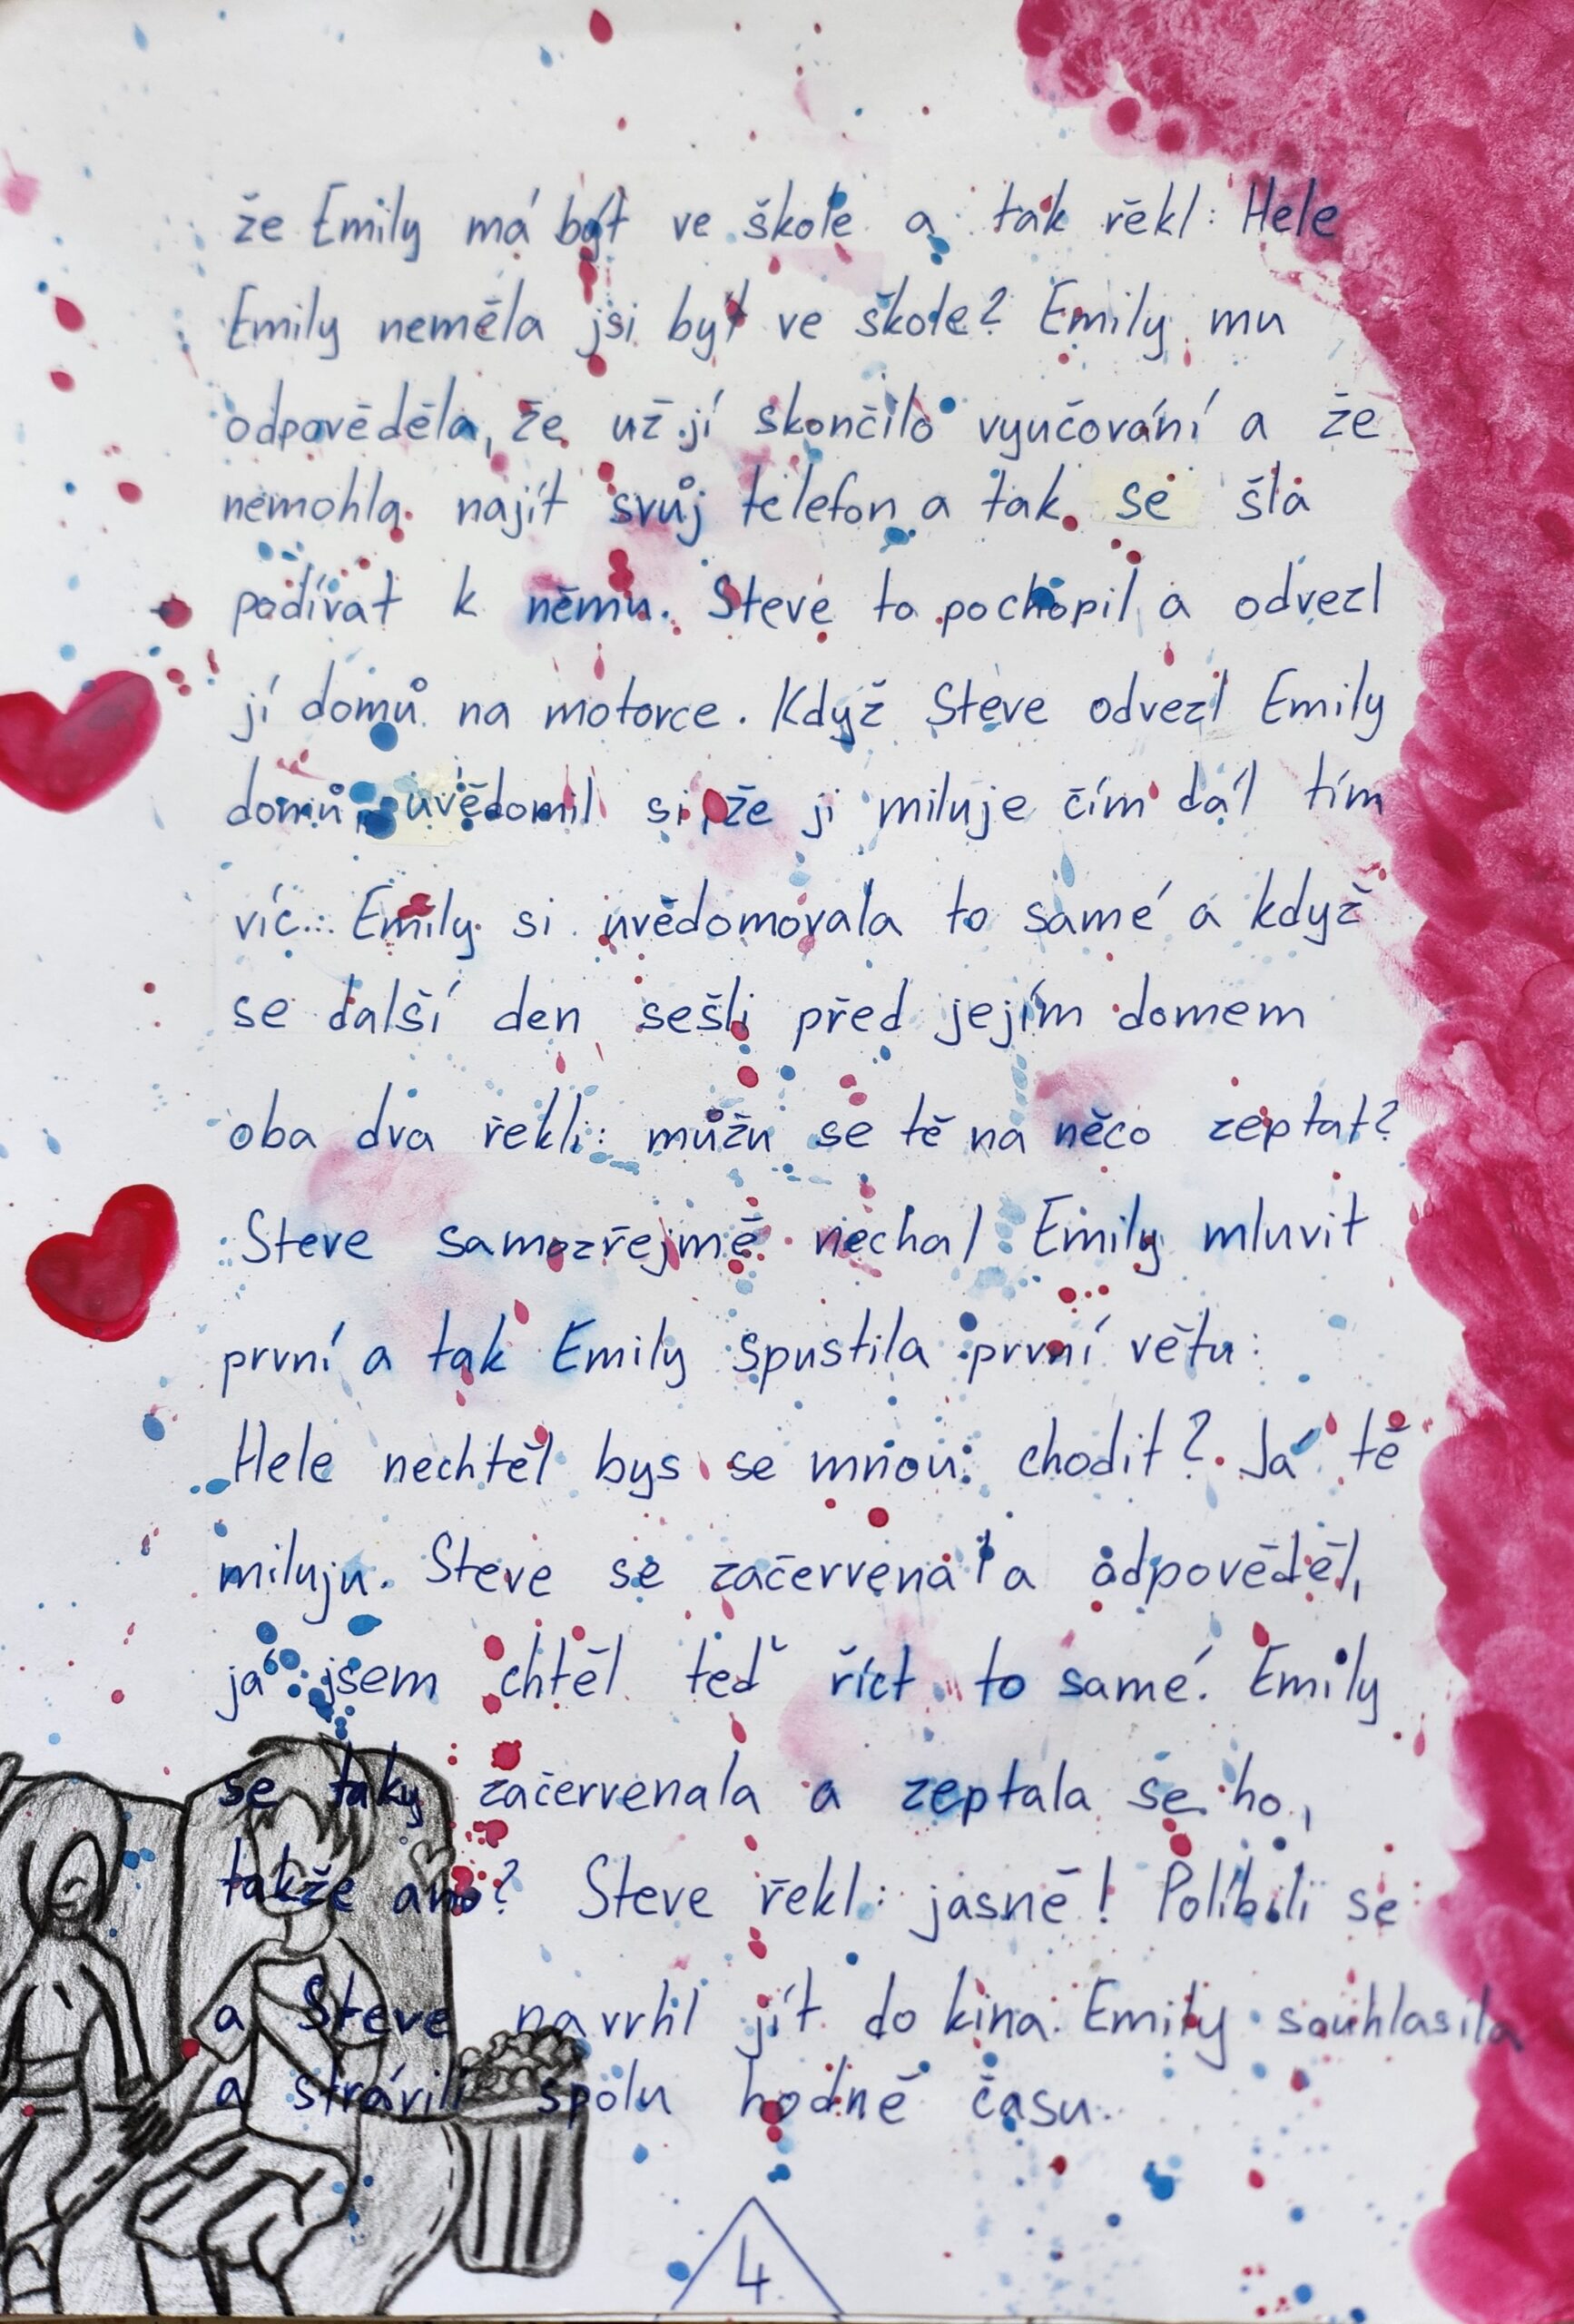 že Emily má být ve škole a tak řekl: Hele
Emily neměla jsi být ve škole? Emily mu
odpověděla, že už jí skončilo vyučování a že
nemohla najít svůj telefon a tak se šla
podívat k němu. Steve to pochopil a odvezl
jí domů na motorce. Když Steve odvezl Emily
domů, uvědomil si, že ji miluje čím dál tím
víc. Emily si uvědomovala to samé a když
se další den sešli před jejím domem
oba dva řekli: můžu se tě na něco zeptat?
Steve samozřejmě nechal Emily mluvit
první a tak Emily spustila první větu:
Hele nechtěl bys se mnou chodit? Já tě
miluju. Steve se začervenal a odpověděl,
já jsem chtěl teď říct to samé. Emily
se taky začervenala a zeptala se ho,
takže ano? Steve řekl: jasně! Políbili se
a Steve navrhl jít do kina. Emily souhlasila
a strávili spolu hodně času.
4